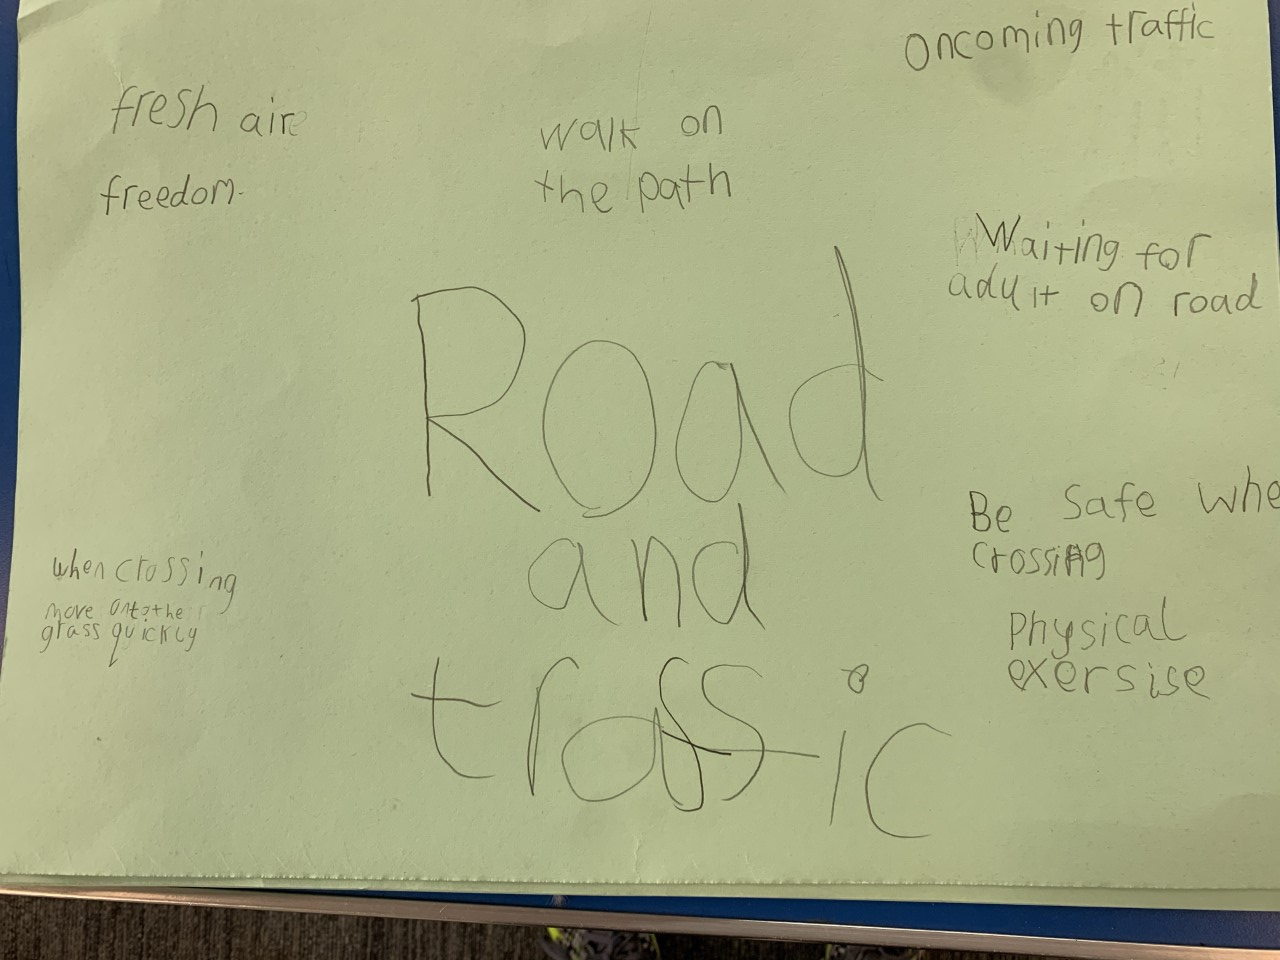 Oncoming traffic
fresh air
freedom.
walk on
the path
Waiting for
adult on road
Road
and
traffic
Be Safe whe
crossing
Physical
exersise
when crossing
move onto the
grass quickly